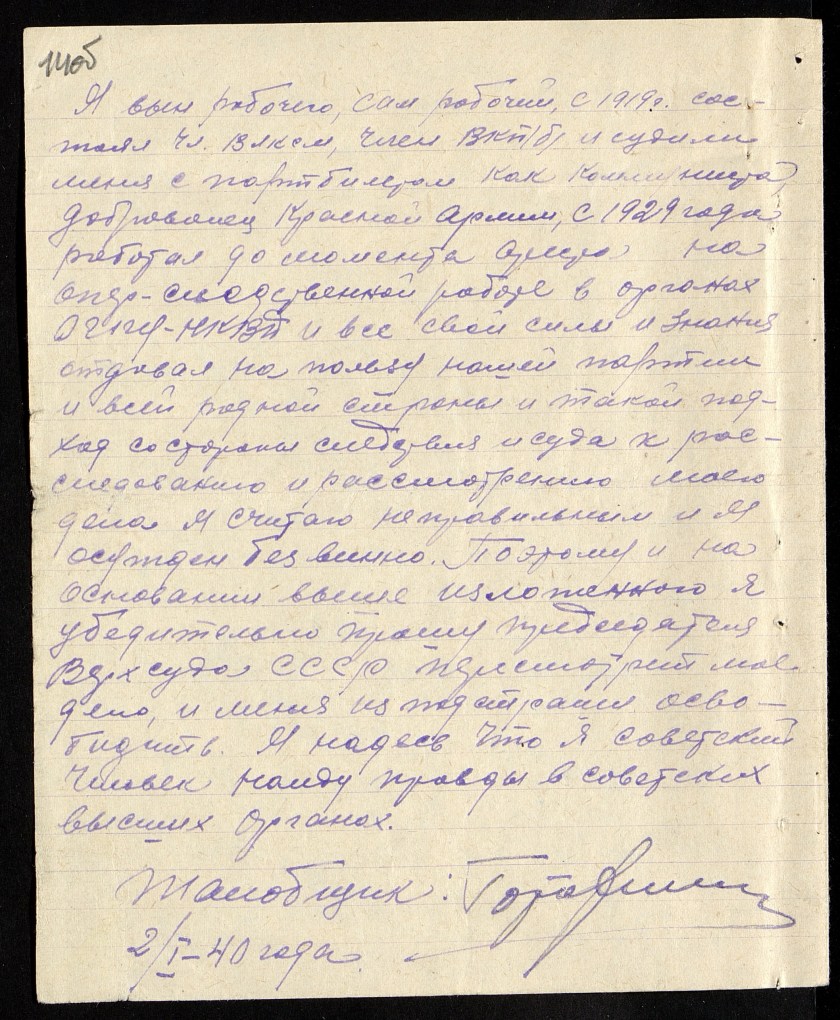 14об
Я сын рабочего, сам рабочий, с 1919г. сос-
тоял чл. ВЛКСМ, член ВКП(б) и судили
меня с партбилетом как коммуниста,
доброволец Красной Армии, с 1929 года
работал до момента ареста на
опер-следственной работе в органах
ОГПУ-НКВД и все свои силы и знания
отдавал на пользу нашей партии
и всей родной страны и такой под-
ход со стороны следствия и суда к рас-
следованию и рассмотрению моего
дела я считаю неправильным и я
осужден безвинно. Поэтому и на
основании выше изложенного я
убедительно прошу председателя
Верхсуда СССР пересмотреть мое
дело, и меня из под стражи осво-
бодить. Я надеюсь что я советский
человек найду правды в советских
высших органах.
Жалобщик:
2/I-40 года.